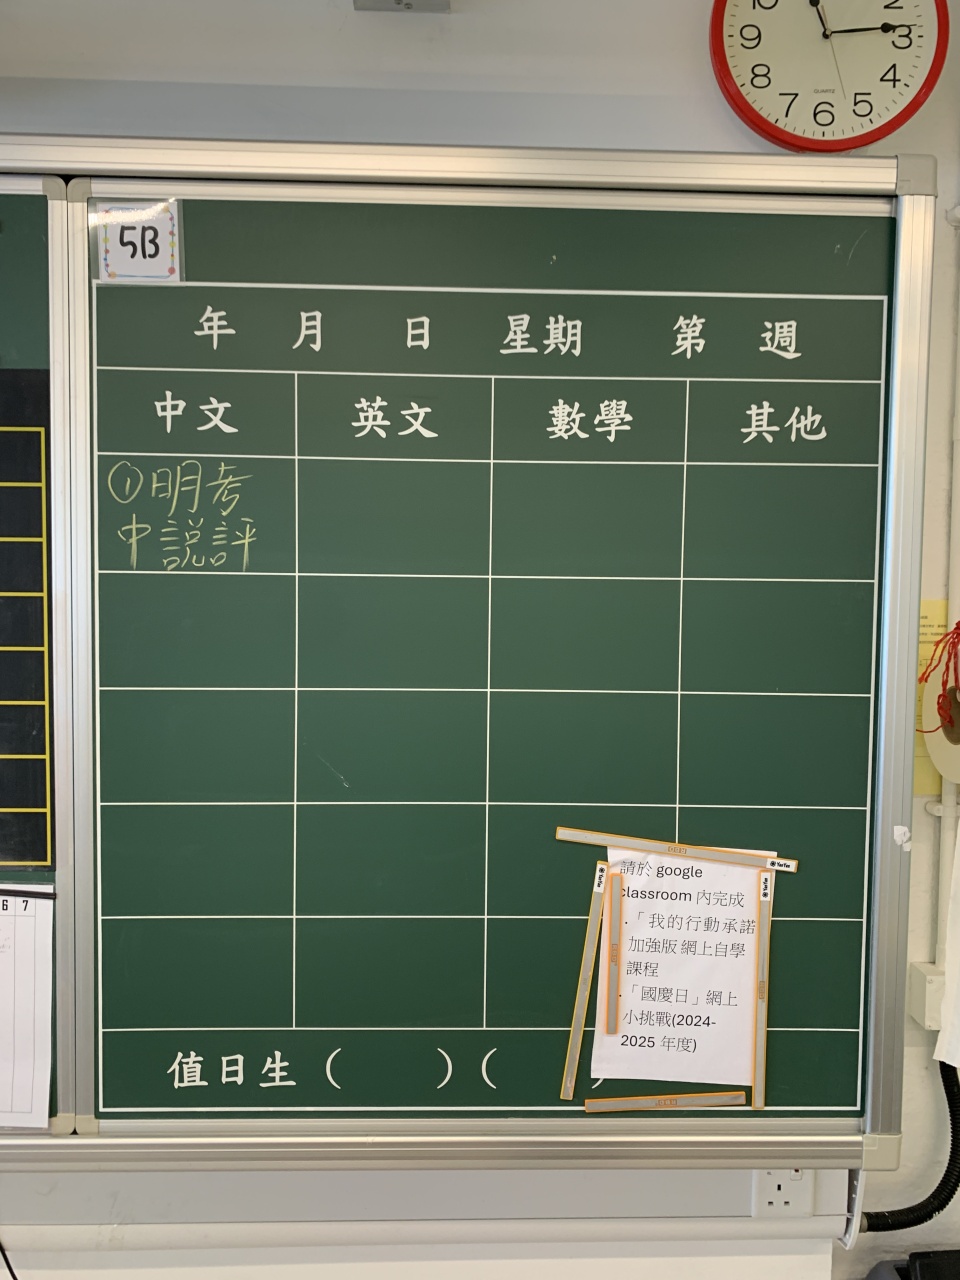 10
2
9
3
8
4
7
6
5
QUARTZ
5B
年 月 日 星期 第 週
中文 英文 數學 其他
①明考
中說評
請於 google
classroom 內完成
.「我的行動承諾
加強版網上自學
課程
.「國慶日」網上
小挑戰(2024-
2025 年度)
值日生 ( ) ( )
6 7